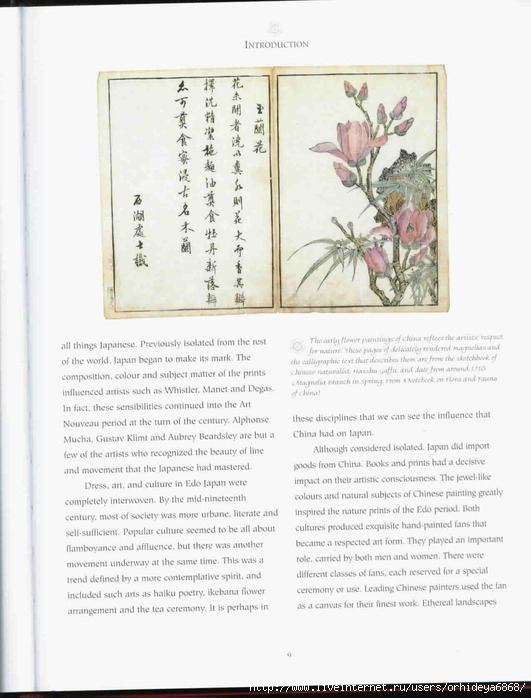 INTRODUCTION
玉蘭花
花未開者澆以糞水則花大而香其瓣
擇洗精潔拖麵油煎食牡丹新落瓣
亦可煎食蜜浸古名木蘭
石湖處士識
all things Japanese. Previously isolated from the rest
of the world, Japan began to make its mark. The
composition, colour and subject matter of the prints
influenced artists such as Whistler, Manet and Degas.
In fact, these sensibilities continued into the Art
Nouveau period at the turn of the century. Alphonse
Mucha, Gustav Klimt and Aubrey Beardsley are but a
few of the artists who recognized the beauty of line
and movement that the Japanese had mastered.
Dress, art, and culture in Edo Japan were
completely interwoven. By the mid-nineteenth
century, most of society was more urbane, literate and
self-sufficient. Popular culture seemed to be all about
flamboyance and affluence, but there was another
movement underway at the same time. This was a
trend defined by a more contemplative spirit, and
included such arts as haiku poetry, ikebana flower
arrangement and the tea ceremony. It is perhaps in
The early flower paintings of China reflect the artists' respect
for nature. These pages of delicately rendered magnolias and
the calligraphic text that describes them are from the sketchbook of
Chinese naturalist, and date from around
(Magnolia Branch in Spring, From A Notebook on Flora and Fauna
of China)
these disciplines that we can see the influence that
China had on Japan.
Although considered isolated, Japan did import
goods from China. Books and prints had a decisive
impact on their artistic consciousness. The jewel-like
colours and natural subjects of Chinese painting greatly
inspired the nature prints of the Edo period. Both
cultures produced exquisite hand-painted fans that
became a respected art form. They played an important
role, carried by both men and women. There were
different classes of fans, each reserved for a special
ceremony or use. Leading Chinese painters used the fan
as a canvas for their finest work. Ethereal landscapes
9
http://www.liveinternet.ru/users/orhideya6868/